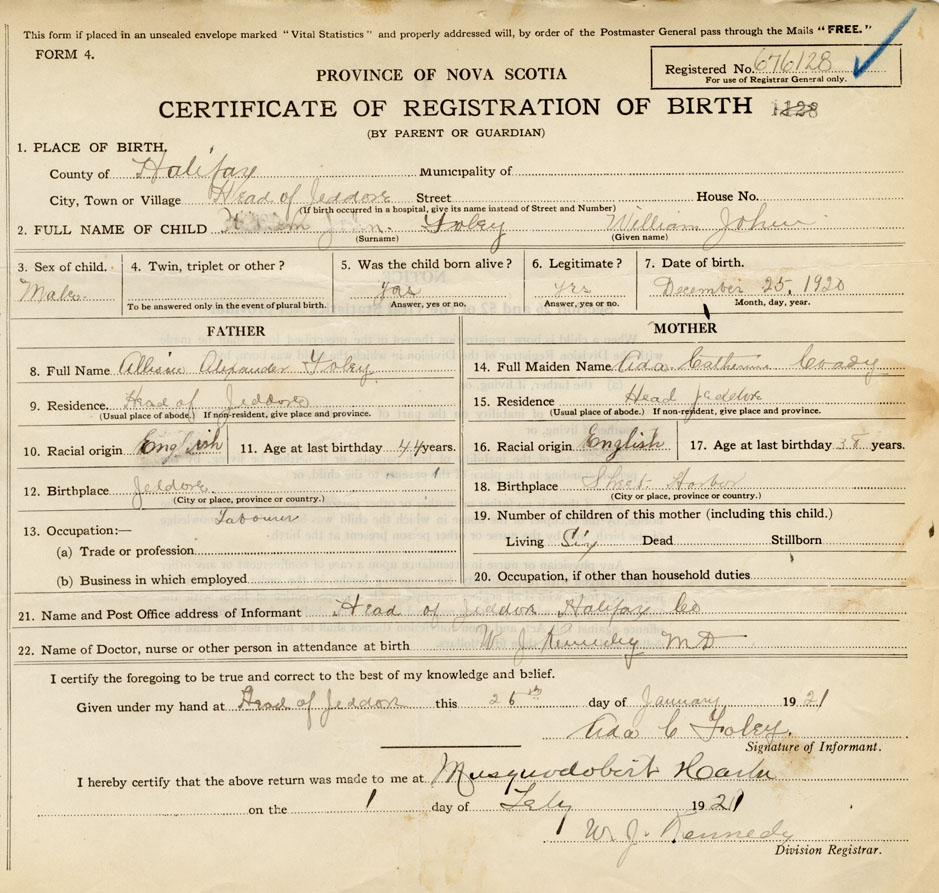 This form if placed in an unsealed envelope marked "Vital Statistics" and properly addressed will, by order of the Postmaster General pass through the Mails "FREE."
FORM 4.
Registered No. 676128
For use of Registrar General only.
PROVINCE OF NOVA SCOTIA
CERTIFICATE OF REGISTRATION OF BIRTH 1128
(BY PARENT OR GUARDIAN)
1. PLACE OF BIRTH.
County of Halifax Municipality of
City, Town or Village Head of Jeddore Street House No.
(If birth occurred in a hospital, give its name instead of Street and Number)
2. FULL NAME OF CHILD John. Foley William John
(Surname) (Given name)
3. Sex of child. 4. Twin, triplet or other? 5. Was the child born alive? 6. Legitimate? 7. Date of birth.
Male. yas yes December 25, 1920
To be answered only in the event of plural birth. Answer, yes or no. Answer, yes or no. Month, day, year.
FATHER MOTHER
8. Full Name Alexander Foley 14. Full Maiden Name Ada Catherine Coady
9. Residence Head of Jeddore 15. Residence Head Jeddore
(Usual place of abode.) If non-resident, give place and province. (Usual place of abode.) If non-resident, give place and province.
10. Racial origin English 11. Age at last birthday 44 years. 16. Racial origin English 17. Age at last birthday 38 years.
12. Birthplace Jeddore 18. Birthplace Harbor
(City or place, province or country.) (City or place, province or country.)
Labourer
13. Occupation:— 19. Number of children of this mother (including this child.)
(a) Trade or profession Living Six Dead Stillborn
(b) Business in which employed 20. Occupation, if other than household duties
21. Name and Post Office address of Informant Head of Jeddor Halifax Co
22. Name of Doctor, nurse or other person in attendance at birth W J Kennedy MD
I certify the foregoing to be true and correct to the best of my knowledge and belief.
Given under my hand at Head of Jeddore this 26th day of January 1921
Ada C Foley.
Signature of Informant.
I hereby certify that the above return was made to me at Musquodoboit Harbr
on the 1 day of Feby 1921
W. J. Kennedy
Division Registrar.